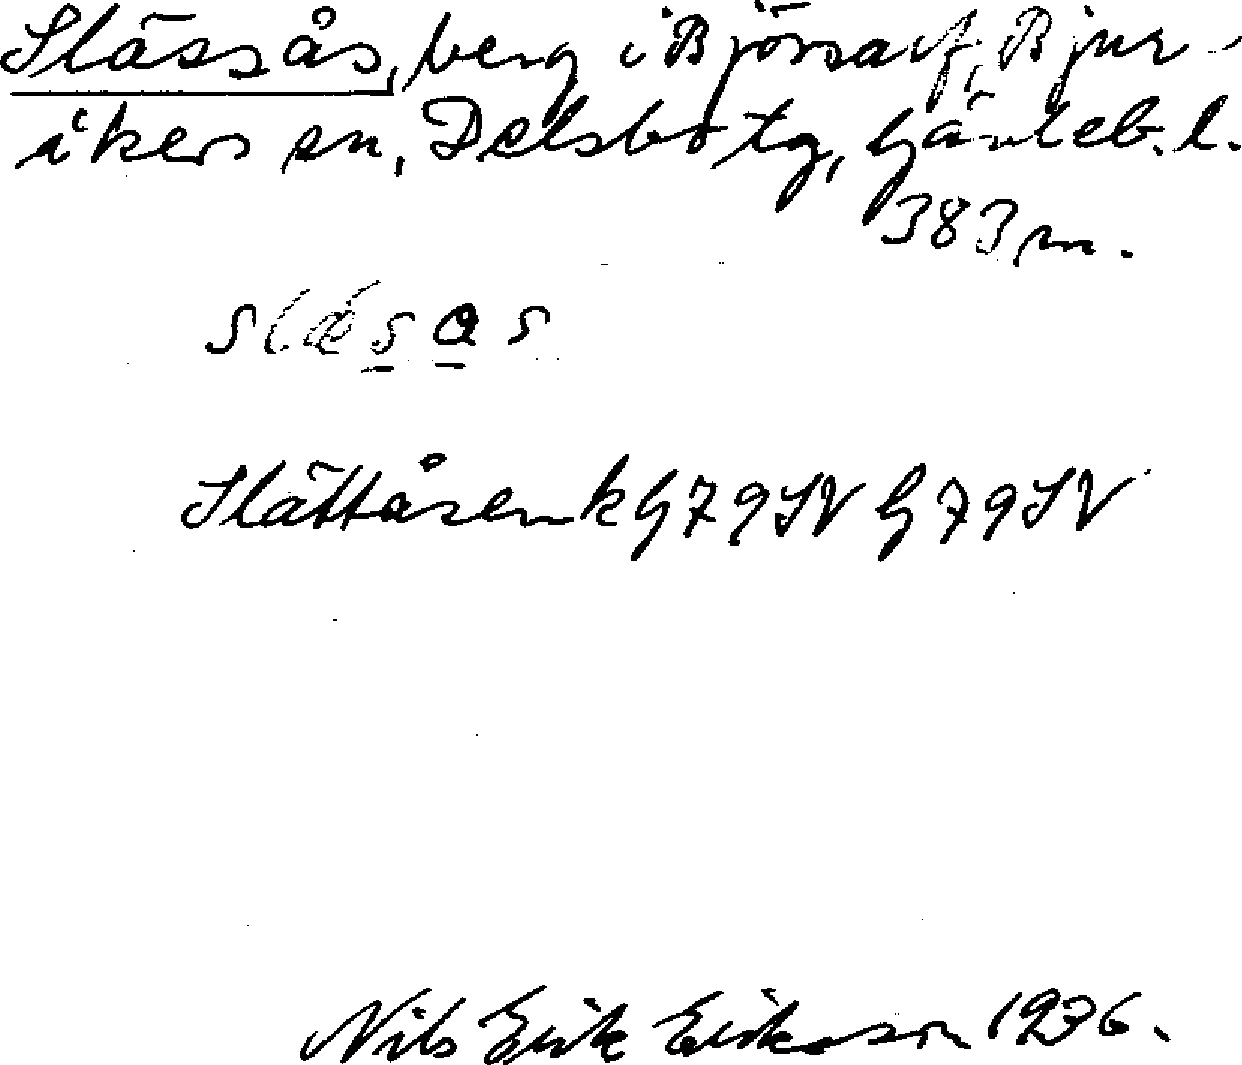 Slässås, berg i Björsarf, Bjur-
åkers sn, Delsbo tg, Gävleb. l.
383 m.
slǽsas
Slättåsen k G 79 SV G 79 SV
Nils Erik Eriksson 1936.